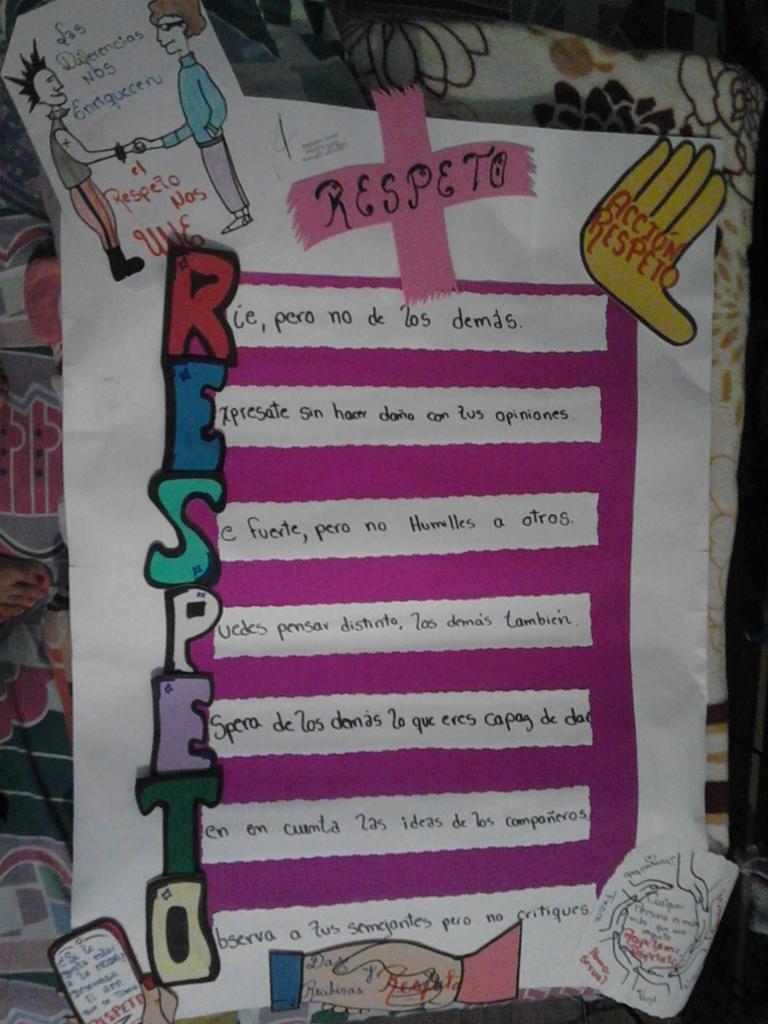 Las
Diferencias
Nos
Enriquecen
el
Respeto Nos
UNE
RESPETO
ACCIÓN
RESPETO
Rie, pero no de los demás.
Expresate sin hacer daño con tus opiniones.
Se fuerte, pero no Humilles a otros.
Puedes pensar distinto, los demás también.
ESpera de los demás lo que eres capaz de dar
Ten en cuenta las ideas de los compañeros.
Observa a tus semejantes pero no critiques.
Das y
Recibiras Respeto
RESPETO
Cualquier
Persona es
más que una